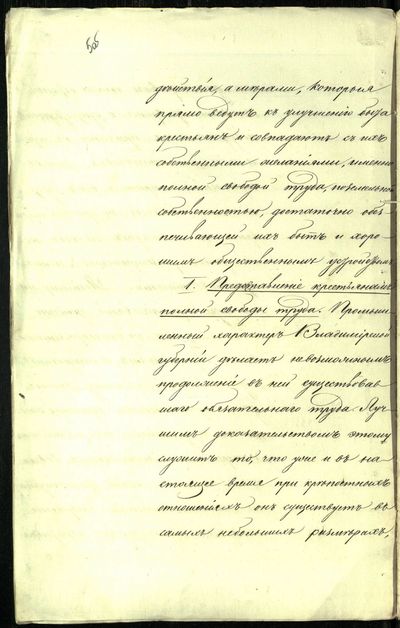 505
действія, а мѣрами, которыя
прямо ведутъ къ улучшенію быта
крестьянъ и совпадаютъ съ ихъ
собственными желаніями, именно
полной свободой труда, поземельной
собственностью, достаточно обез
печивающей ихъ бытъ и хоро-
шимъ общественнымъ устройствомъ
I. Предоставленіе крестьянамъ
полной свободы труда. Промыш
ленный характеръ Владимірской
губерніи дѣлаетъ невозможнымъ
продолженіе въ ней существовав
шаго обязательнаго труда. Луч
шимъ доказательствомъ этому
служитъ то, что уже и въ на
стоящее время при крѣпостныхъ
отношеніяхъ онъ существуетъ въ
самыхъ небольшихъ размѣрахъ,